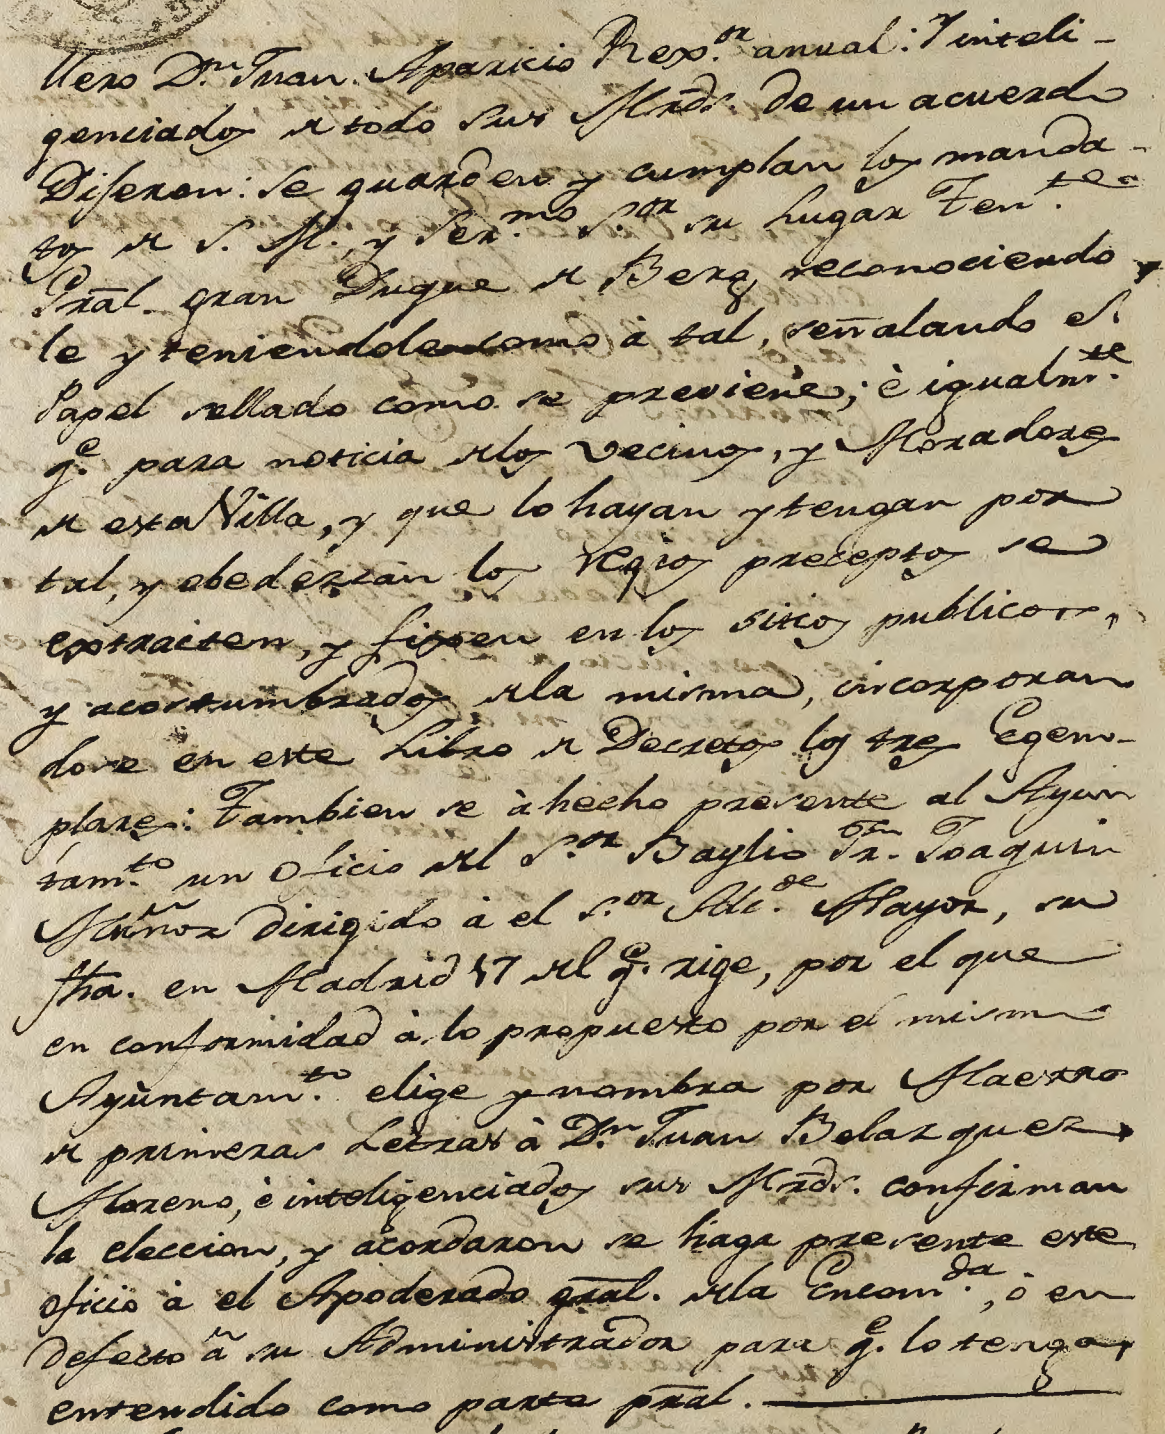 llero D.ⁿ Juan Aparicio Rex.ᵒʳ anual: Y inteli-
genciados de todo sus Mrds. de un acuerdo
Diseron: Se guarden y cumplan los manda-
tos de S. M. y Ser.ᵐᵒ S.ᵒʳ su Lugar Ten.ᵗᵉ
Gral. gran Duque de Berg, reconociendo
le y teniendole como à tal, señalando el
Papel sellado como se previene; è igualm.ᵗᵉ
q.ᵉ para noticia de los vecinos, y Moradores
de esta Villa, y que lo hayan y tengan por
tal, y obedezcan los regios preceptos se
extraiten, y fixen en los sitios publicos,
y acostumbrados de la misma, incorporan
dose en este Libro de Decretos los tres Egem-
plares: Tambien se à hecho presente al Ayun
tam.ᵗᵒ un Oficio del S.ᵒʳ Baylio Fr. Joaquin
Muñoz dirigido à el S.ᵒʳ Alc.ᵈᵉ Mayor, su
fha. en Madrid 17 del q.ᵉ rige, por el que
en conformidad à lo propuesto por el mismo
Ayuntam.ᵗᵒ elige y nombra por Maestro
de primeras Letras à D.ⁿ Juan Belazquez
Moreno, è inteligenciados sus Mrds. confirman
la eleccion, y acordaron se haga presente este
oficio à el Apoderado gral. de la Encom.ᵈᵃ, ò en
defecto à su Administrador para q.ᵉ lo tenga
entendido como parte pral.